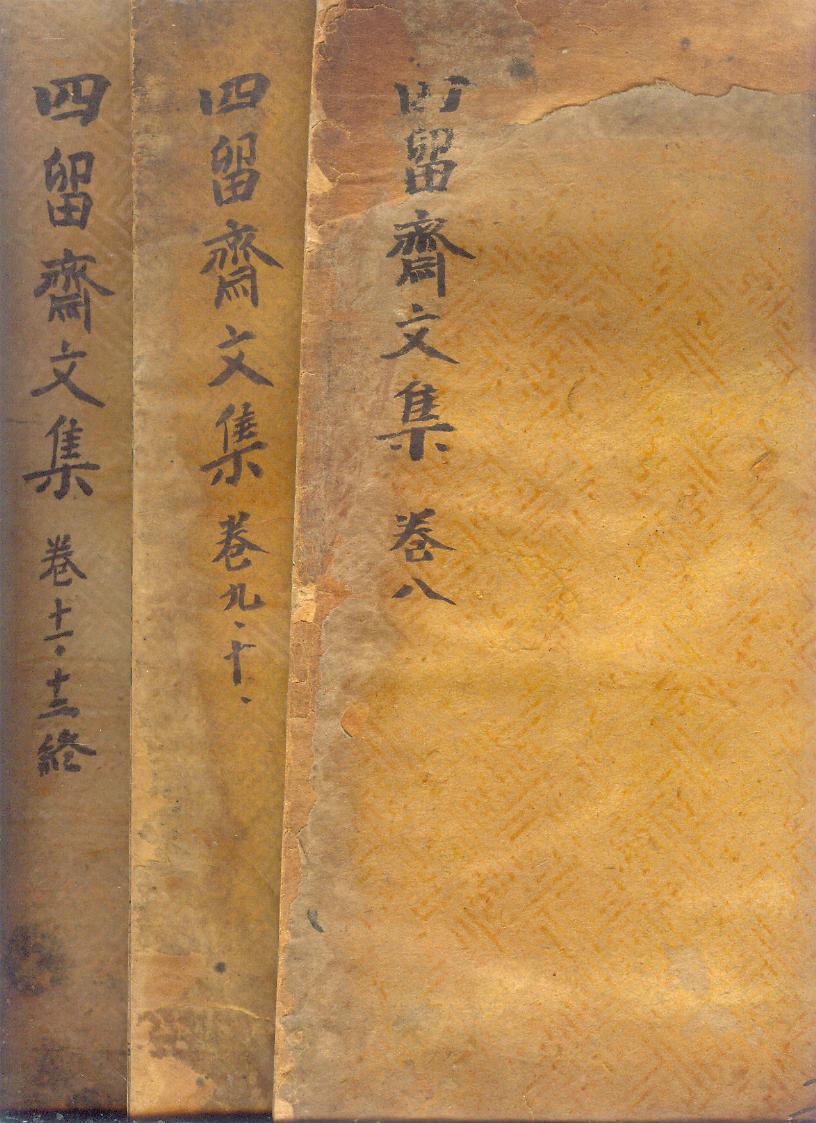 四留齋文集 卷八
四留齋文集 卷九、十、
四留齋文集 卷十一·十二終